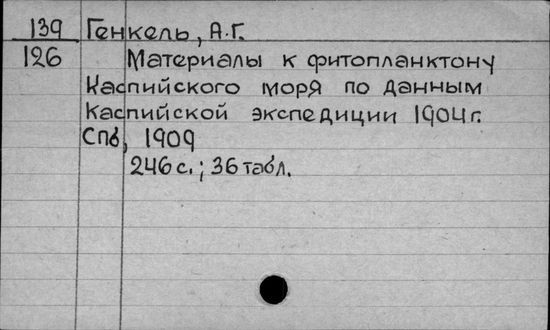 139 Генкель, А.Г.
126 Материалы к фитопланктону
Каспийского моря по данным
Каспийской экспедиции 1904г.
Спб, 1909
246 с.; 36 табл.